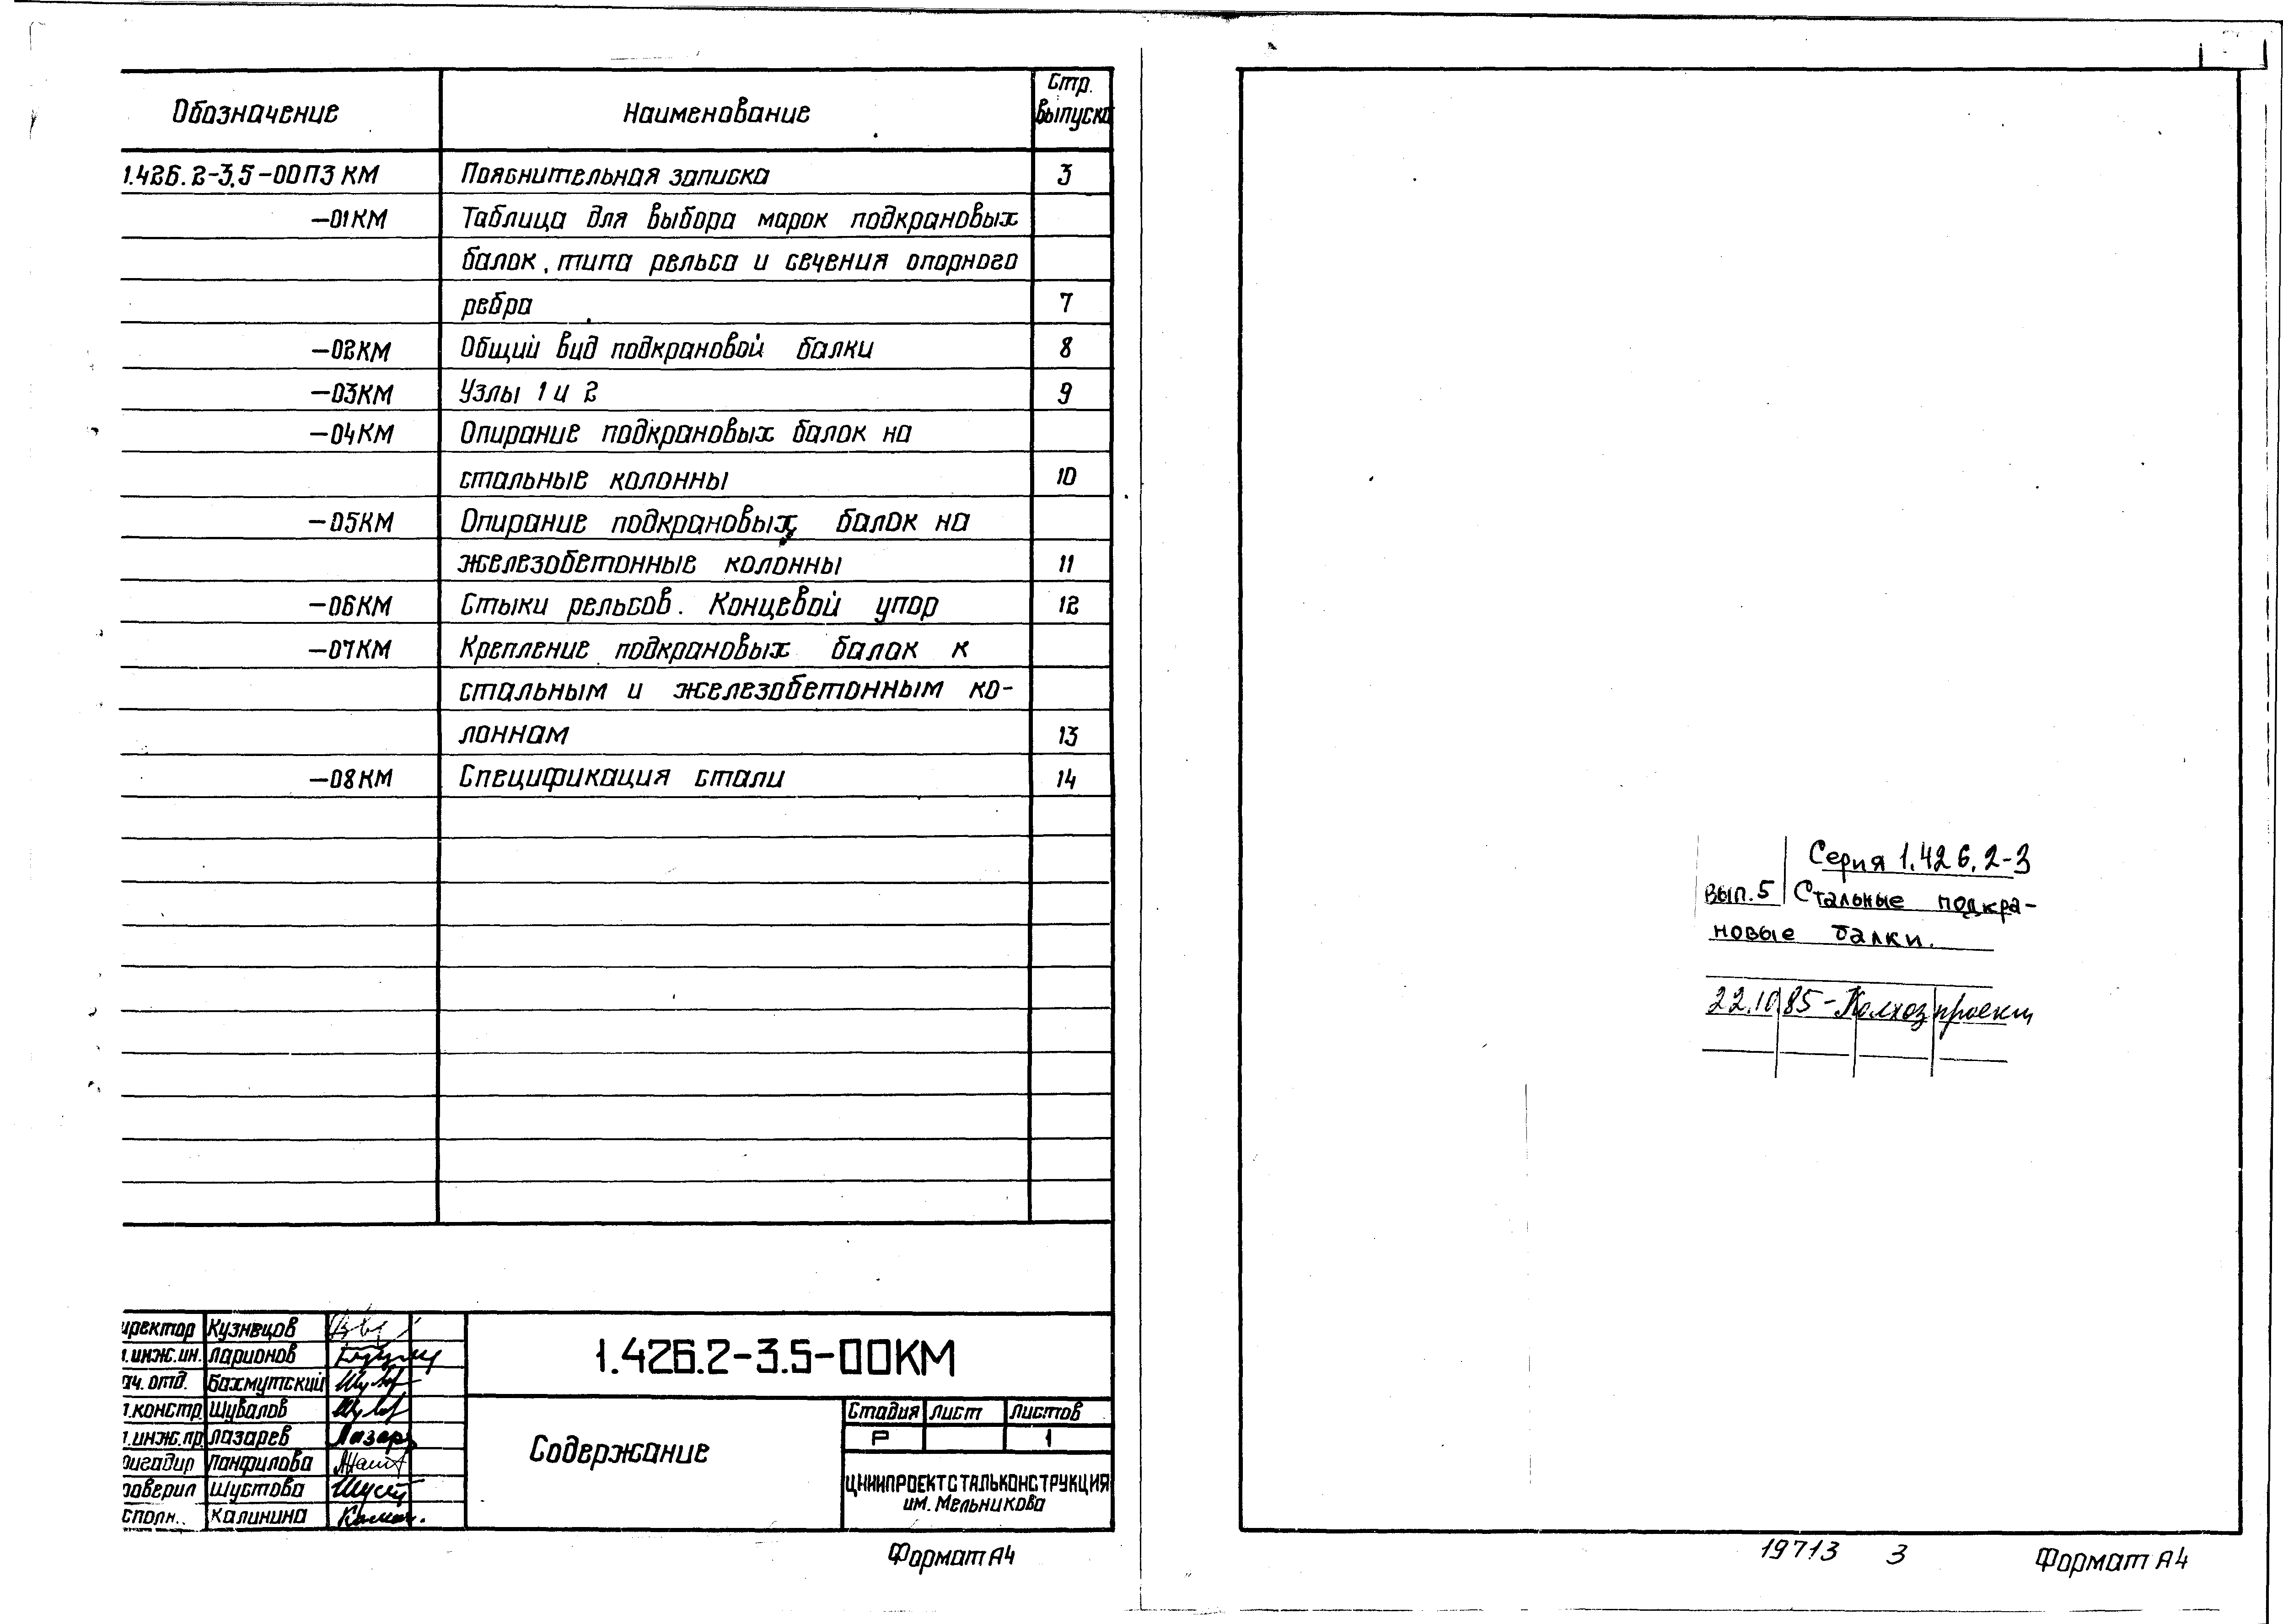 Обозначение Наименование Стр. выпуска
1.426.2-3.5-00ПЗ КМ Пояснительная записка 3
-01КМ Таблица для выбора марок подкрановых
балок, типа рельса и сечения опорного
ребра 7
-02КМ Общий вид подкрановой балки 8
-03КМ Узлы 1 и 2 9
-04КМ Опирание подкрановых балок на
стальные колонны 10
-05КМ Опирание подкрановых балок на
железобетонные колонны 11
-06КМ Стыки рельсов. Концевой упор 12
-07КМ Крепление подкрановых балок к
стальным и железобетонным ко-
лоннам 13
-08КМ Спецификация стали 14
иректор Кузнецов
.инж.ин. Ларионов
ач. отд. Бахмутский
.констр. Шувалов
.инж.пр. Лазарев
ригадир Панфилова
роверил Шустова
сполн. Калинина
1.426.2-3.5-00КМ
Содержание
Стадия Лист Листов
Р 1
ЦНИИПРОЕКТСТАЛЬКОНСТРУКЦИЯ
им. Мельникова
Формат А4
Серия 1.426.2-3
Вып.5 Стальные подкра-
новые балки.
22.10.85 - Колхозпроект
19713 3
Формат А4